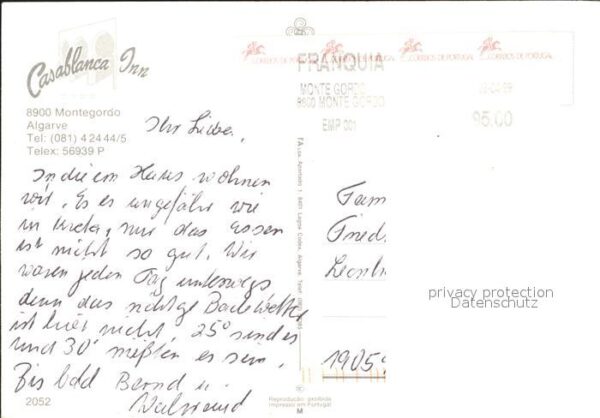 Casablanca Inn
8900 Montegordo
Algarve
Tel: (081) 42444/5
Telex: 56939 P
Ihr Lieben,
In diesem Haus wohnen
wir. Es ist ungefähr wie
in nur das Essen
ist nicht so gut. Wir
waren jeden Tag unterwegs
denn das richtige Badewetter
ist hier nicht, 25° sind es
und 30° müßten es sein.
Bis bald Bernd u.
Waltraud
2052
CORREIOS DE PORTUGAL CORREIOS DE PORTUGAL CORREIOS DE PORTUGAL CORREIOS DE PORTUGAL
FRANQUIA
MONTE GORDO
8900 MONTE GORDO
EMP 001
95.00
Fam
Fried
1905
privacy protection
Datenschutz
Reprodução proibida
Impresso em Portugal
M